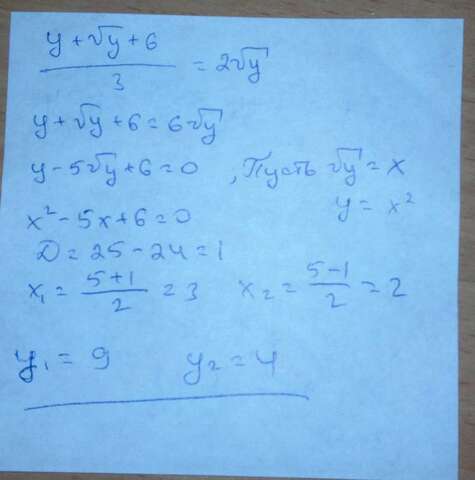 y + √y + 6 / 3 = 2√y
y + √y + 6 = 6√y
y - 5√y + 6 = 0 , Пусть √y = x
y = x²
x² - 5x + 6 = 0
D = 25 - 24 = 1
x₁ = 5+1 / 2 = 3 x₂ = 5-1 / 2 = 2
y₁ = 9 y₂ = 4